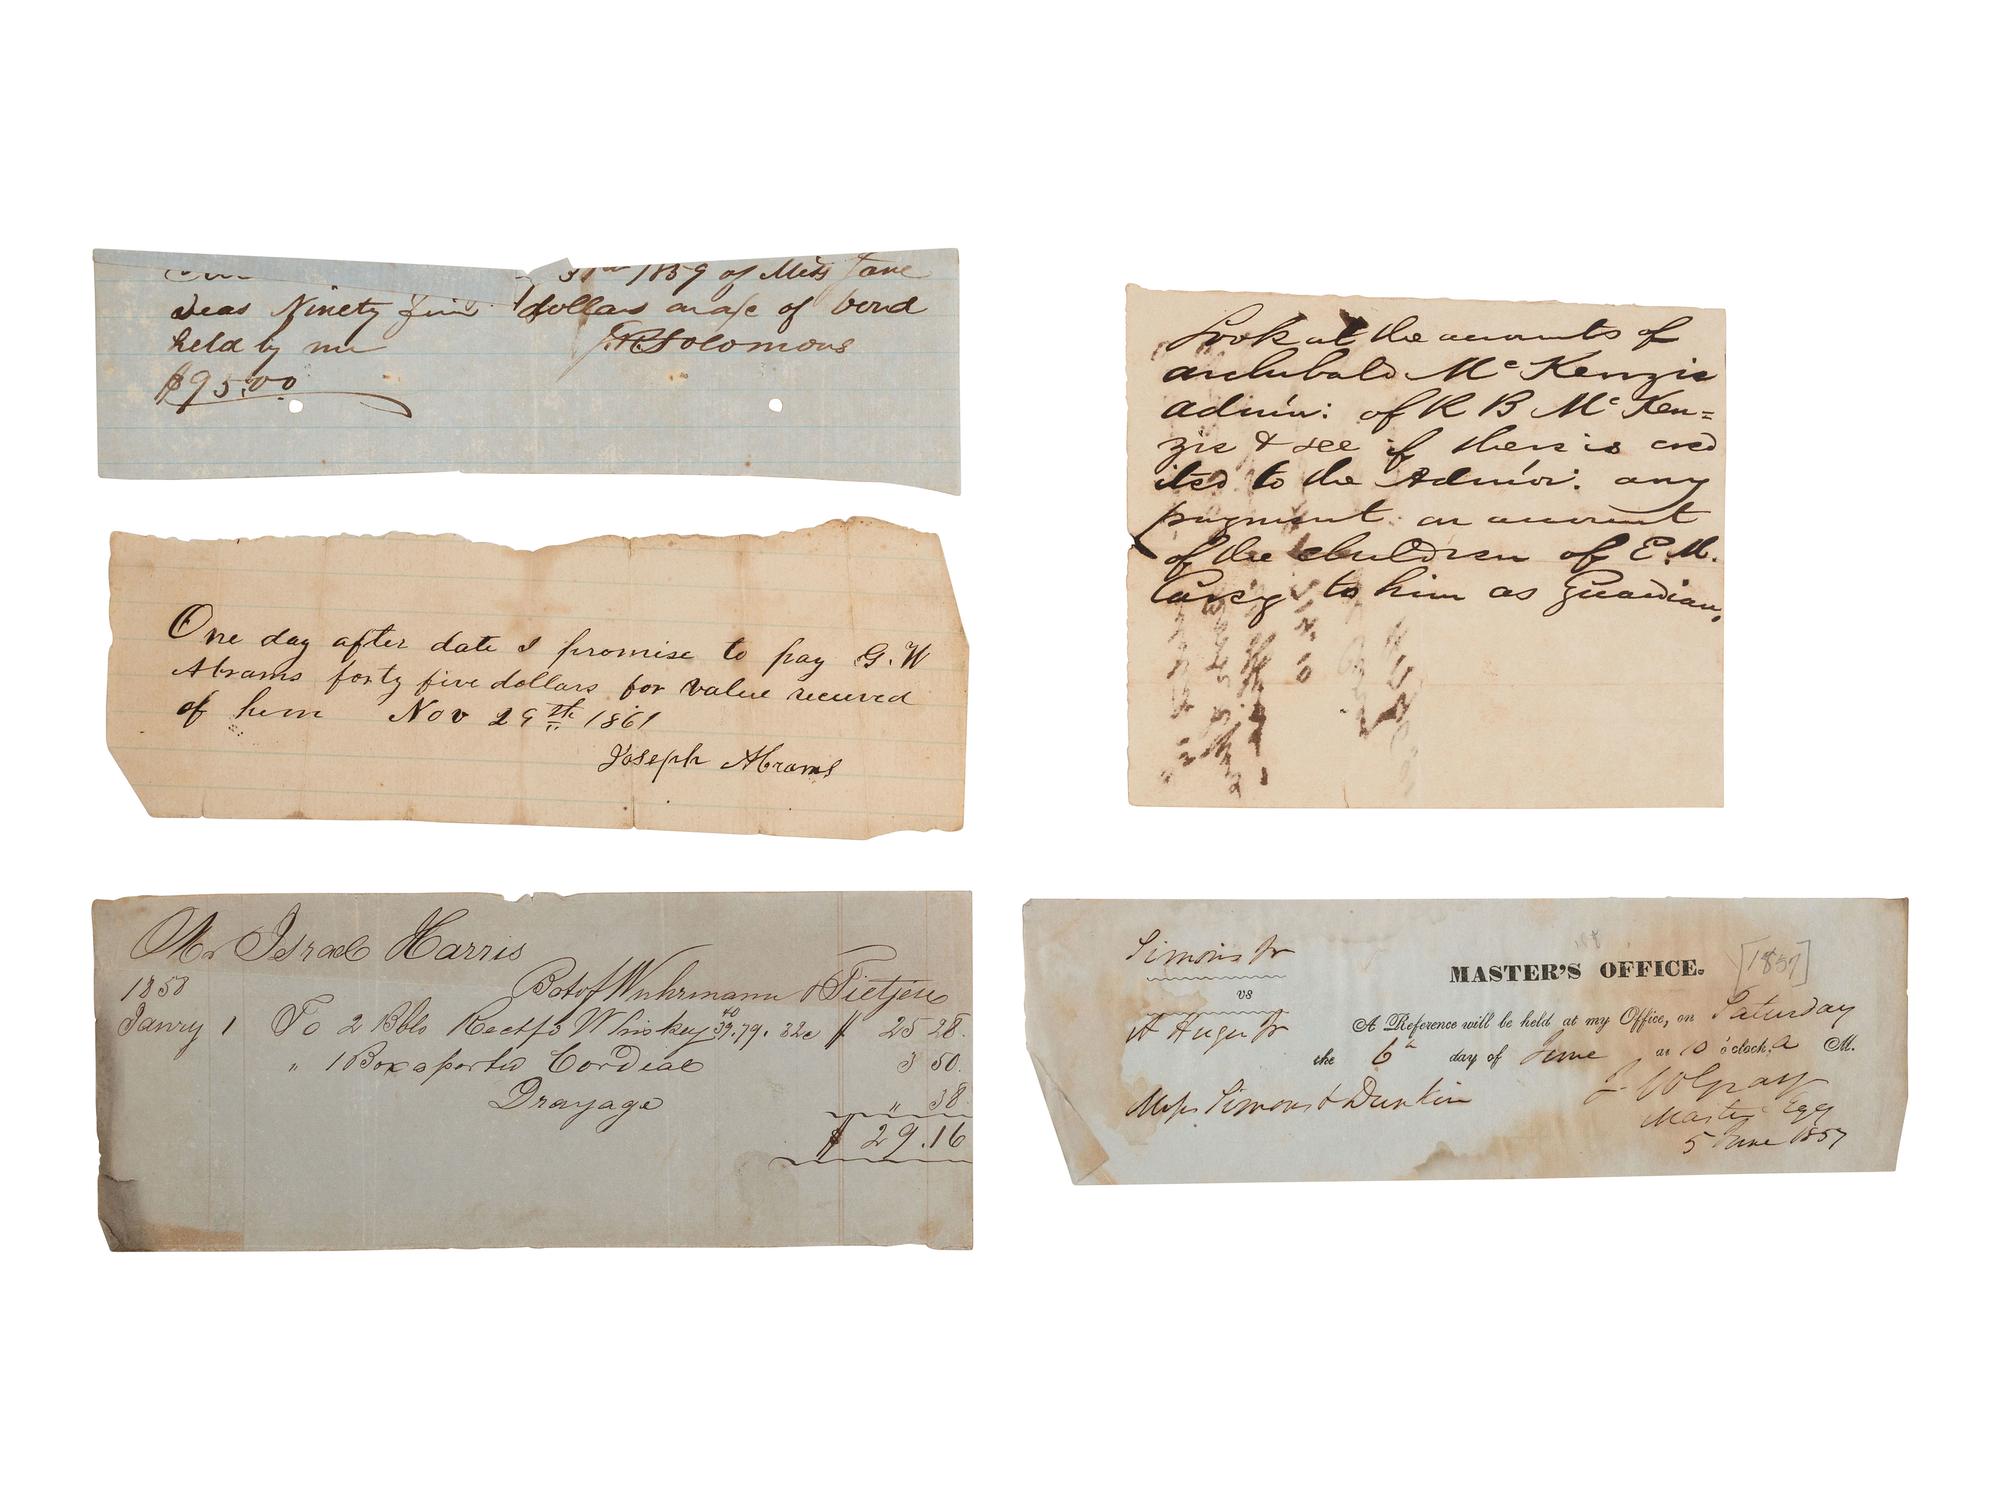 31st 1859 of Miss Jane
Deas Ninety five dollars on a/c of bond
held by me
J.R. Solomons
$95.00
One day after date I promise to pay G. W
Abrams forty five dollars for value received
of him Nov 29th 1861
Joseph Abrams
Mr Israel Harris
1858 Bot of Wuhrmann & Tietjen
Janry 1 To 2 Bbls Rectfd Whiskey 40 39.79. 32c $ 25 28.
" 1 Box asported Cordial 3 50.
Drayage " 38
$ 29.16
Look at the accounts of
archibald McKenzie
admór: of R B McKen=
zie & see if there is cred
ited to the Admór: any
payment on account
of the children of E. M.
Carey to him as Guardian.
Simons Jr
vs
A Huger Jr
Messrs Simons & Dunkin
MASTER'S OFFICE. [1857]
A Reference will be held at my Office, on Saturday
the 6th day of June at 10 o'clock, A M.
J. W Gray
Master Eqy
5 June 1857